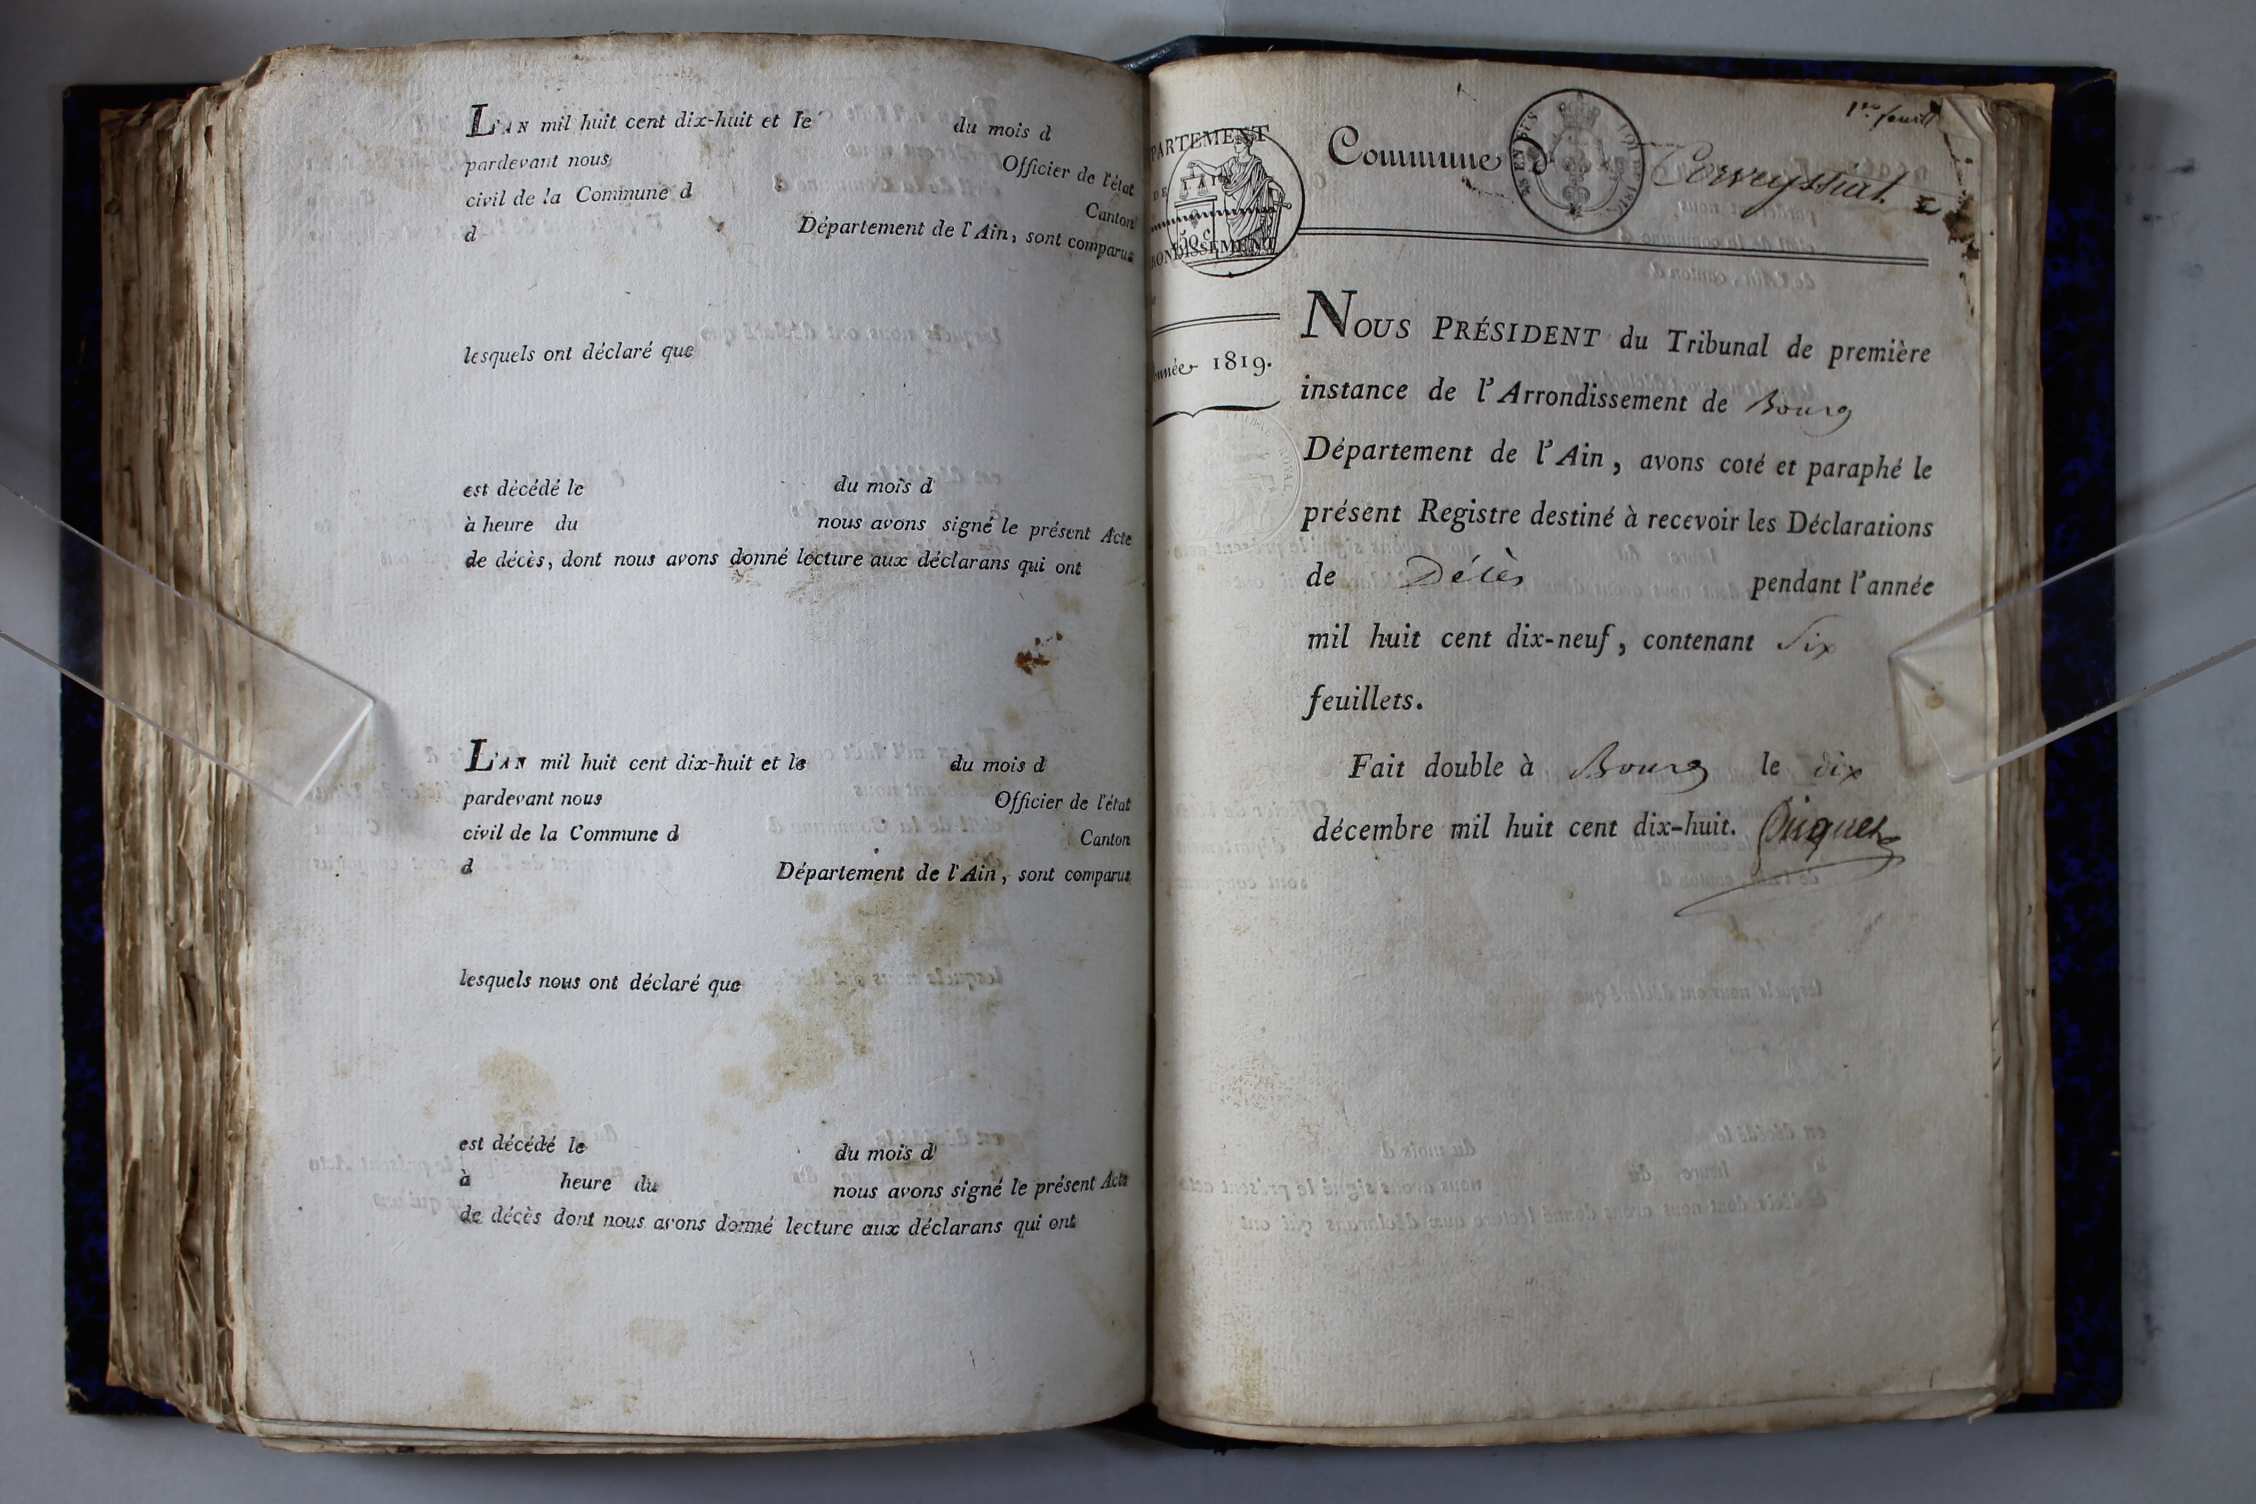 L'AN mil huit cent dix-huit et le du mois d
pardevant nous Officier de l'état
civil de la Commune d Canton
d Département de l'Ain, sont comparus
lesquels ont déclaré que
est décédé le du mois d
à heure du nous avons signé le présent Acte
de décès, dont nous avons donné lecture aux déclarans qui ont
L'AN mil huit cent dix-huit et le du mois d
pardevant nous Officier de l'état
civil de la Commune d Canton
d Département de l'Ain, sont comparus
lesquels nous ont déclaré que
est décédé le du mois d
à heure du nous avons signé le présent Acte
de décès dont nous avons donné lecture aux déclarans qui ont
1er feuill
PARTEMENT
DE L'AIN
ONDISSEMENT
nnée 1819.
Commune d Corveyssiat.
NOUS PRÉSIDENT du Tribunal de première
instance de l'Arrondissement de Bourg
Département de l'Ain, avons coté et paraphé le
présent Registre destiné à recevoir les Déclarations
de Décès pendant l'année
mil huit cent dix-neuf, contenant Six
feuillets.
Fait double à Bourg le dix
décembre mil huit cent dix-huit.